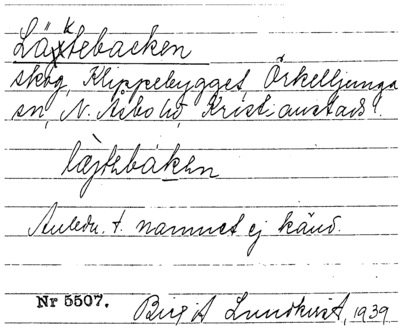 Läktebacken
skog, Klippebygget, Örkelljunga
sn, N. Åsbo hd, Kristianstads l.
læ̀jtebáken
Anledn. t. namnet ej känd.
Nr 5507.
Birgit Lundkvist, 1939